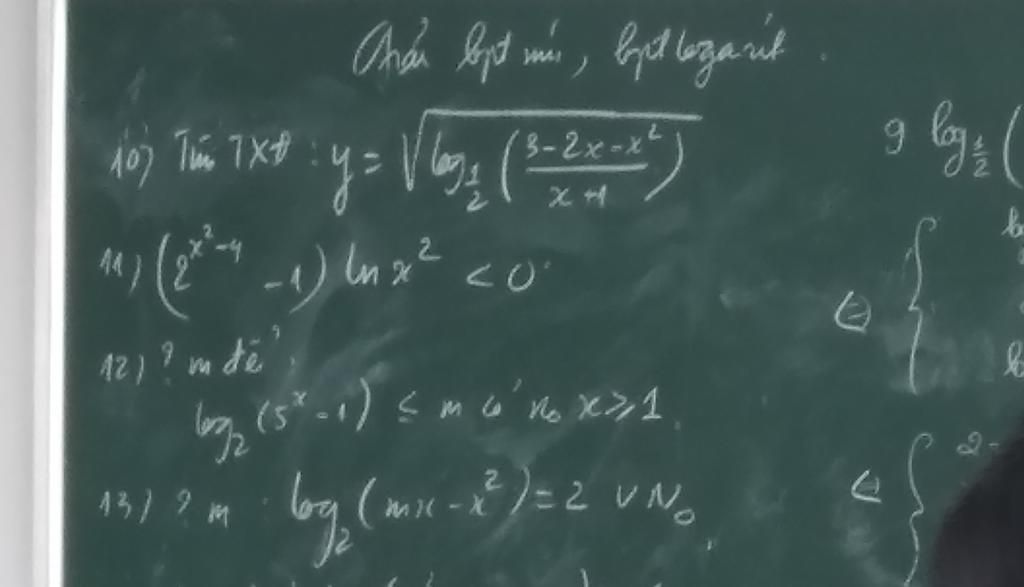 Giải bpt mũ, bpt logarit.
10) Tìm TXĐ: y = √(log_{1/2} ((3-2x-x²)/(x+1)))
11) (2^{x²-4} - 1) ln x² < 0
12) ? m để
log₂ (5^x - 1) ≤ m có n₀ x ≥ 1.
13) ? m log₂ (mx - x²) = 2 VN₀
9 log_{1/2} (
⇔ {
⇔ { 2-